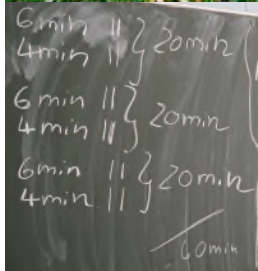 6min ||
4min || } 20min
6min ||
4min || } 20min
6min ||
4min || } 20min
60min